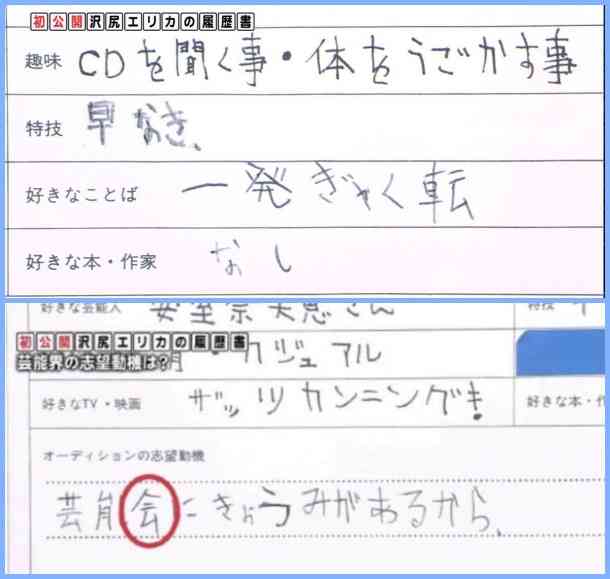 初公開沢尻エリカの履歴書
趣味 CDを聞く事・体をうごかす事
特技 早なき、
好きなことば 一発ぎゃく転
好きな本・作家 なし
好きな芸能人 安室奈美恵さん
特技
初公開沢尻エリカの履歴書
芸能界の志望動機は?
・カジュアル
好きなTV・映画 ザッツカンニングき!
好きな本・作
オーディションの志望動機
芸能会にきょうみがあるから、